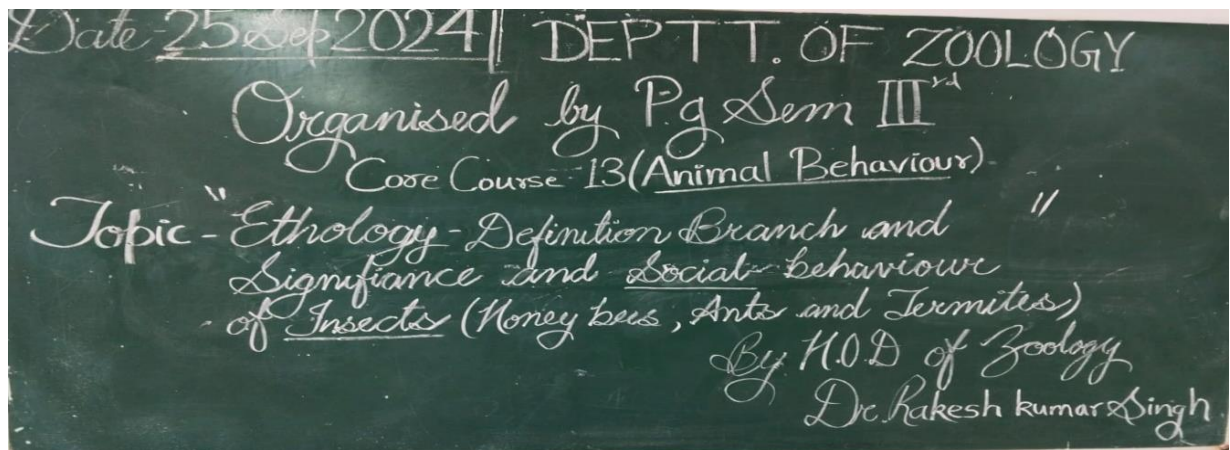 Date-25 Sep 2024 | DEPTT. OF ZOOLOGY
Organised by P.g Sem III rd
Core Course-13(Animal Behaviour)
Topic - "Ethology - Definition Branch and "
Signifiance and Social behaviour
of Insects (Honey bees, Ants and Termites)
By H.O.D of Zoology
Dr. Rakesh kumar Singh